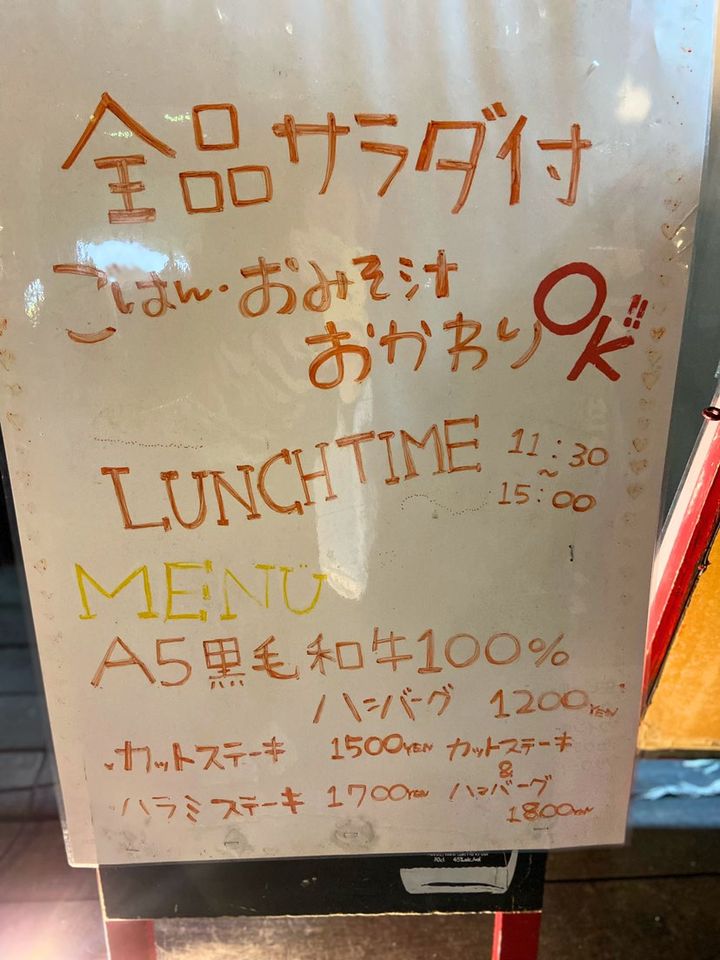 全品サラダ付
ごはん・おみそ汁
おかわりOK!!
LUNCHTIME 11:30
~
15:00
MENU
A5黒毛和牛100%
ハンバーグ 1200YEN
カットステーキ 1500YEN カットステーキ
&
ハラミステーキ 1700YEN ハンバーグ
1800YEN
70cl 45%alc/vol